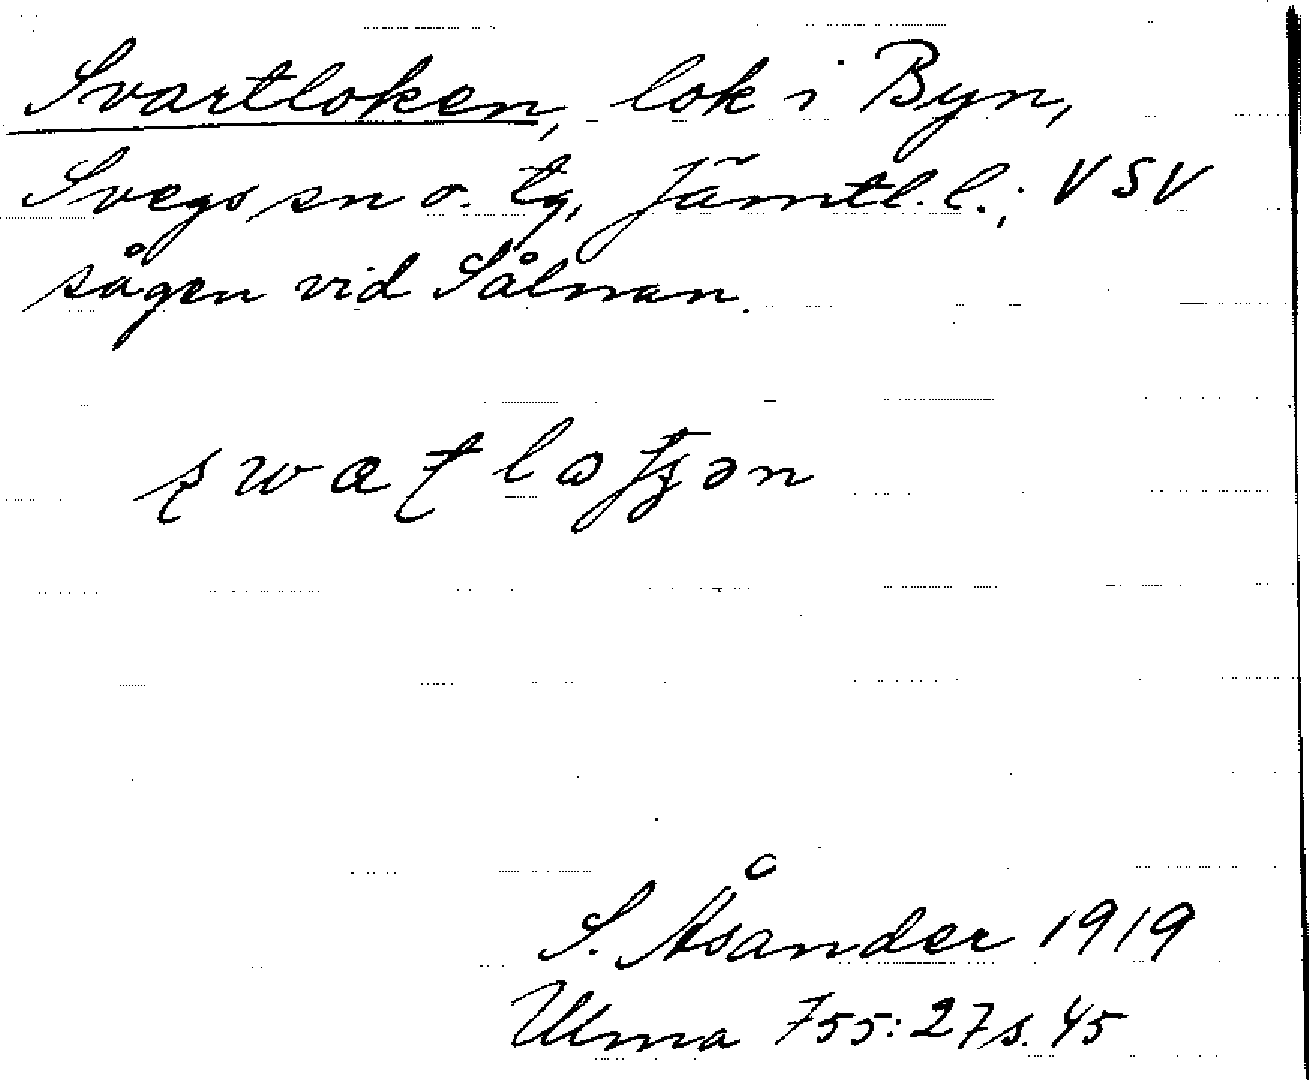 Svartloken, lok i Byn,
Svegs sn o. tg, Jämtl. l.; VSV
sågen vid Sålnan.
S. Åsander 1919
Ulma 755:27 s. 45